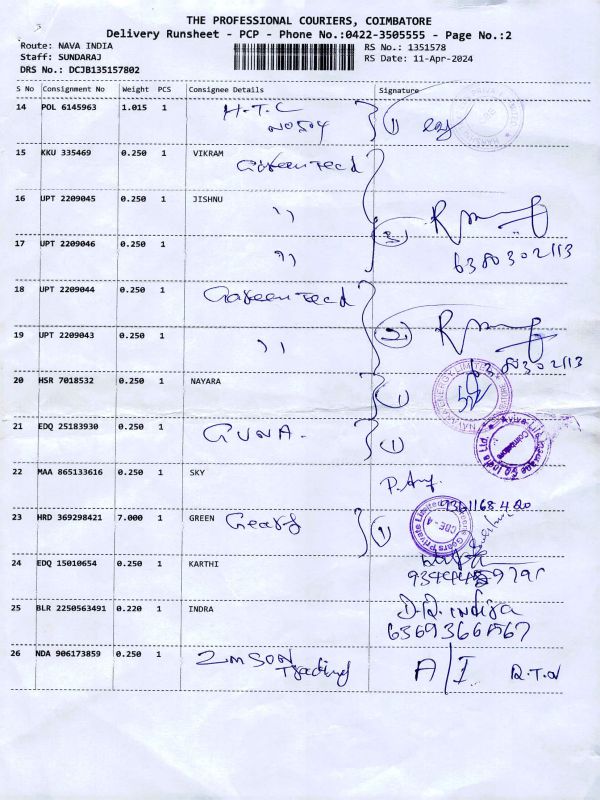 THE PROFESSIONAL COURIERS, COIMBATORE
Delivery Runsheet - PCP - Phone No.:0422-3505555 - Page No.:2
Route: NAVA INDIA
Staff: SUNDARAJ
DRS No.: DCJB135157802
RS No.: 1351578
RS Date: 11-Apr-2024
S No Consignment No Weight PCS Consignee Details Signature
14 POL 6145963 1.015 1 H.T.C
15 KKU 335469 0.250 1 VIKRAM
16 UPT 2209045 0.250 1 JISHNU
17 UPT 2209046 0.250 1
6380302113
18 UPT 2209044 0.250 1
19 UPT 2209043 0.250 1
20 HSR 7018532 0.250 1 NAYARA
21 EDQ 25183930 0.250 1 GUNA.
22 MAA 865133616 0.250 1 SKY
23 HRD 369298421 7.000 1 GREEN Gears
24 EDQ 15010654 0.250 1 KARTHI
25 BLR 2250563491 0.220 1 INDRA
26 NDA 906173859 0.250 1 Trading A/I R.T.O